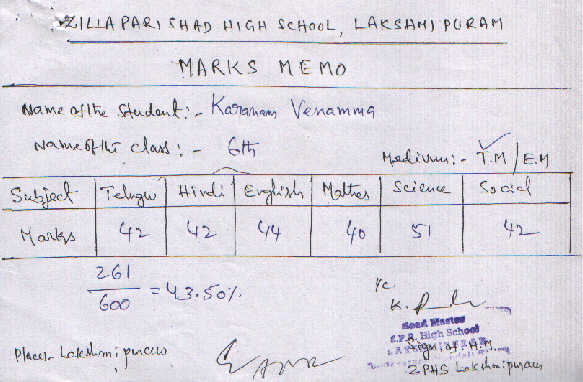 ZILLA PARISHAD HIGH SCHOOL, LAKSHMIPURAM
MARKS MEMO
Name of the Student:- Karanam Venamma
Name of the class:- 6th
Medium:- T.M / E.M
Subject Telugu Hindi English Maths Science Social
Marks 42 42 44 40 51 42
261
600
= 43.50%
Head Master
Z.P.P. High School
Sign. of H.M.
Place:- Lakshmipuram
ZPHS Lakshmipuram